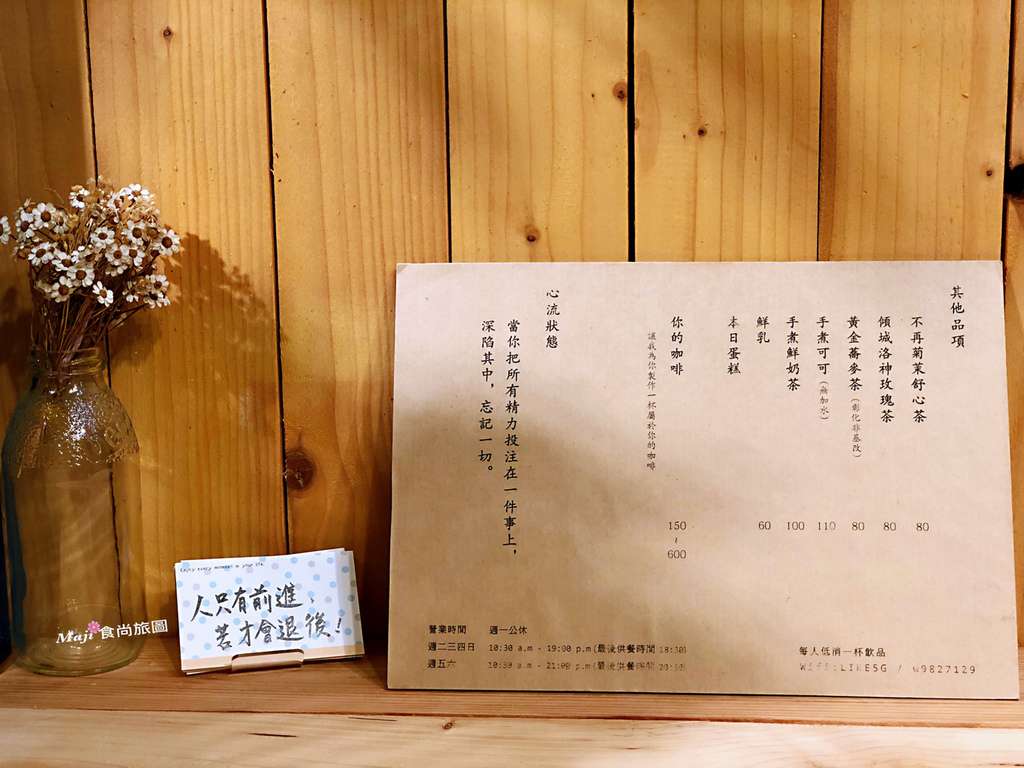 其他品項
不再菊茉舒心茶 80
傾城洛神玫瑰茶 80
黃金蕎麥茶(彰化非基改) 80
手煮可可(無加水) 110
手煮鮮奶茶 100
鮮乳 60
本日蛋糕
你的咖啡 150 ~ 600
讓我為你製作一杯屬於你的咖啡
心流狀態
當你把所有精力投注在一件事上,
深陷其中,忘記一切。
營業時間 週一公休
週二三四日 10:30 a.m - 19:00 p.m(最後供餐時間 18:30)
週五六 10:30 a.m - 21:00 p.m(最後供餐時間 20:30)
每人低消一杯飲品
WIFI:LIKE5G / w9827129
Enjoy every moment in your life.
人只有前進、
苦才會退後!
Maji 食尚旅圖